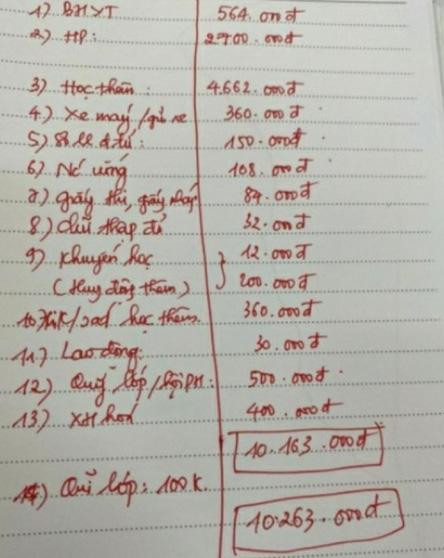 1) BHYT 564.000đ
2) HP: 2700.000đ
3) Học thêm: 4.662.000đ
4.) Xe máy/gửi xe 360.000đ
5) Sổ LL đ tử: 150.000đ
6) Nc uống 108.000đ
7) giấy thi, giấy nháp 84.000đ
8.) chữ thập đỏ 32.000đ
9) Khuyến học 12.000đ
(Huy động thêm) 200.000đ
học thêm. 360.000đ
11.) Lao động: 30.000đ
12) Quỹ lớp/hội PH: 500.000đ
13.) XH hoá 400.000đ
10.163.000đ
14) Quĩ lớp: 100K.
10.263.000đ